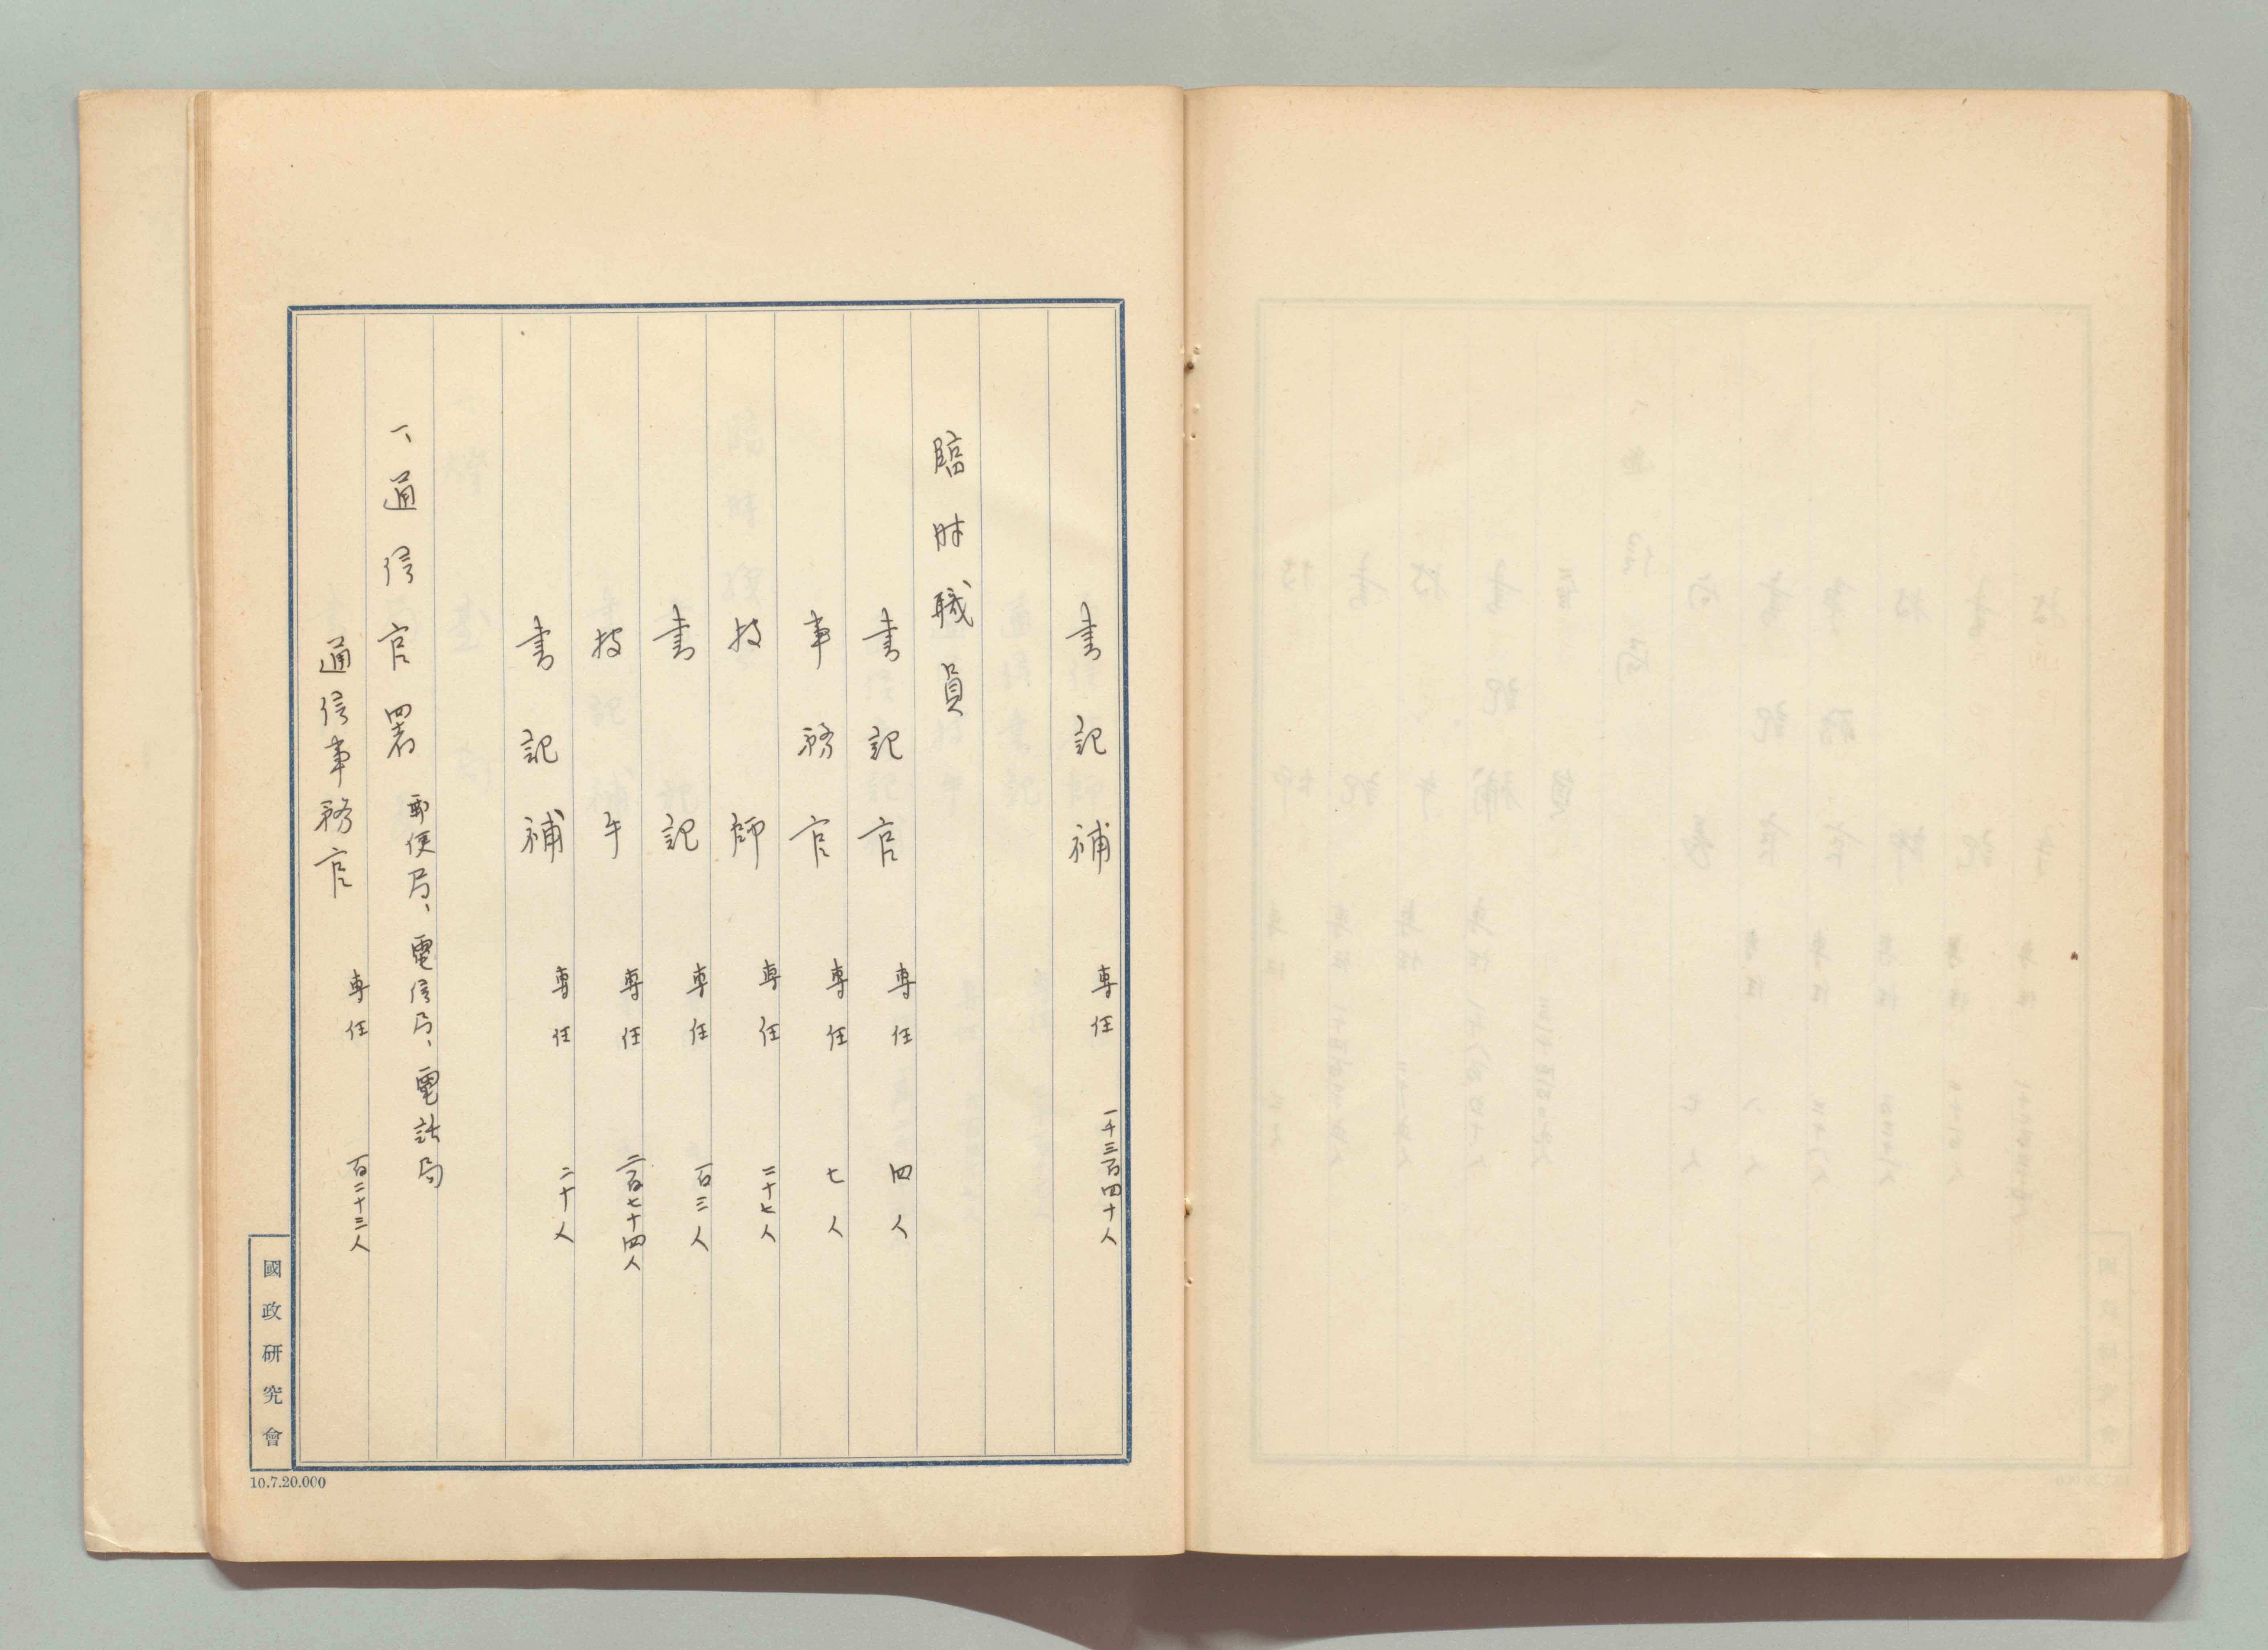 書記補 専任 一千三百四十人
臨時職員
書記官 専任 四人
事務官 専任 七人
技師 専任 二十七人
書記 専任 百三人
技手 専任 二百七十四人
書記補 専任 二十人
一、通信官署 郵便局、電信局、電話局
通信事務官 専任 百二十三人
國政研究會
10.7.20.000